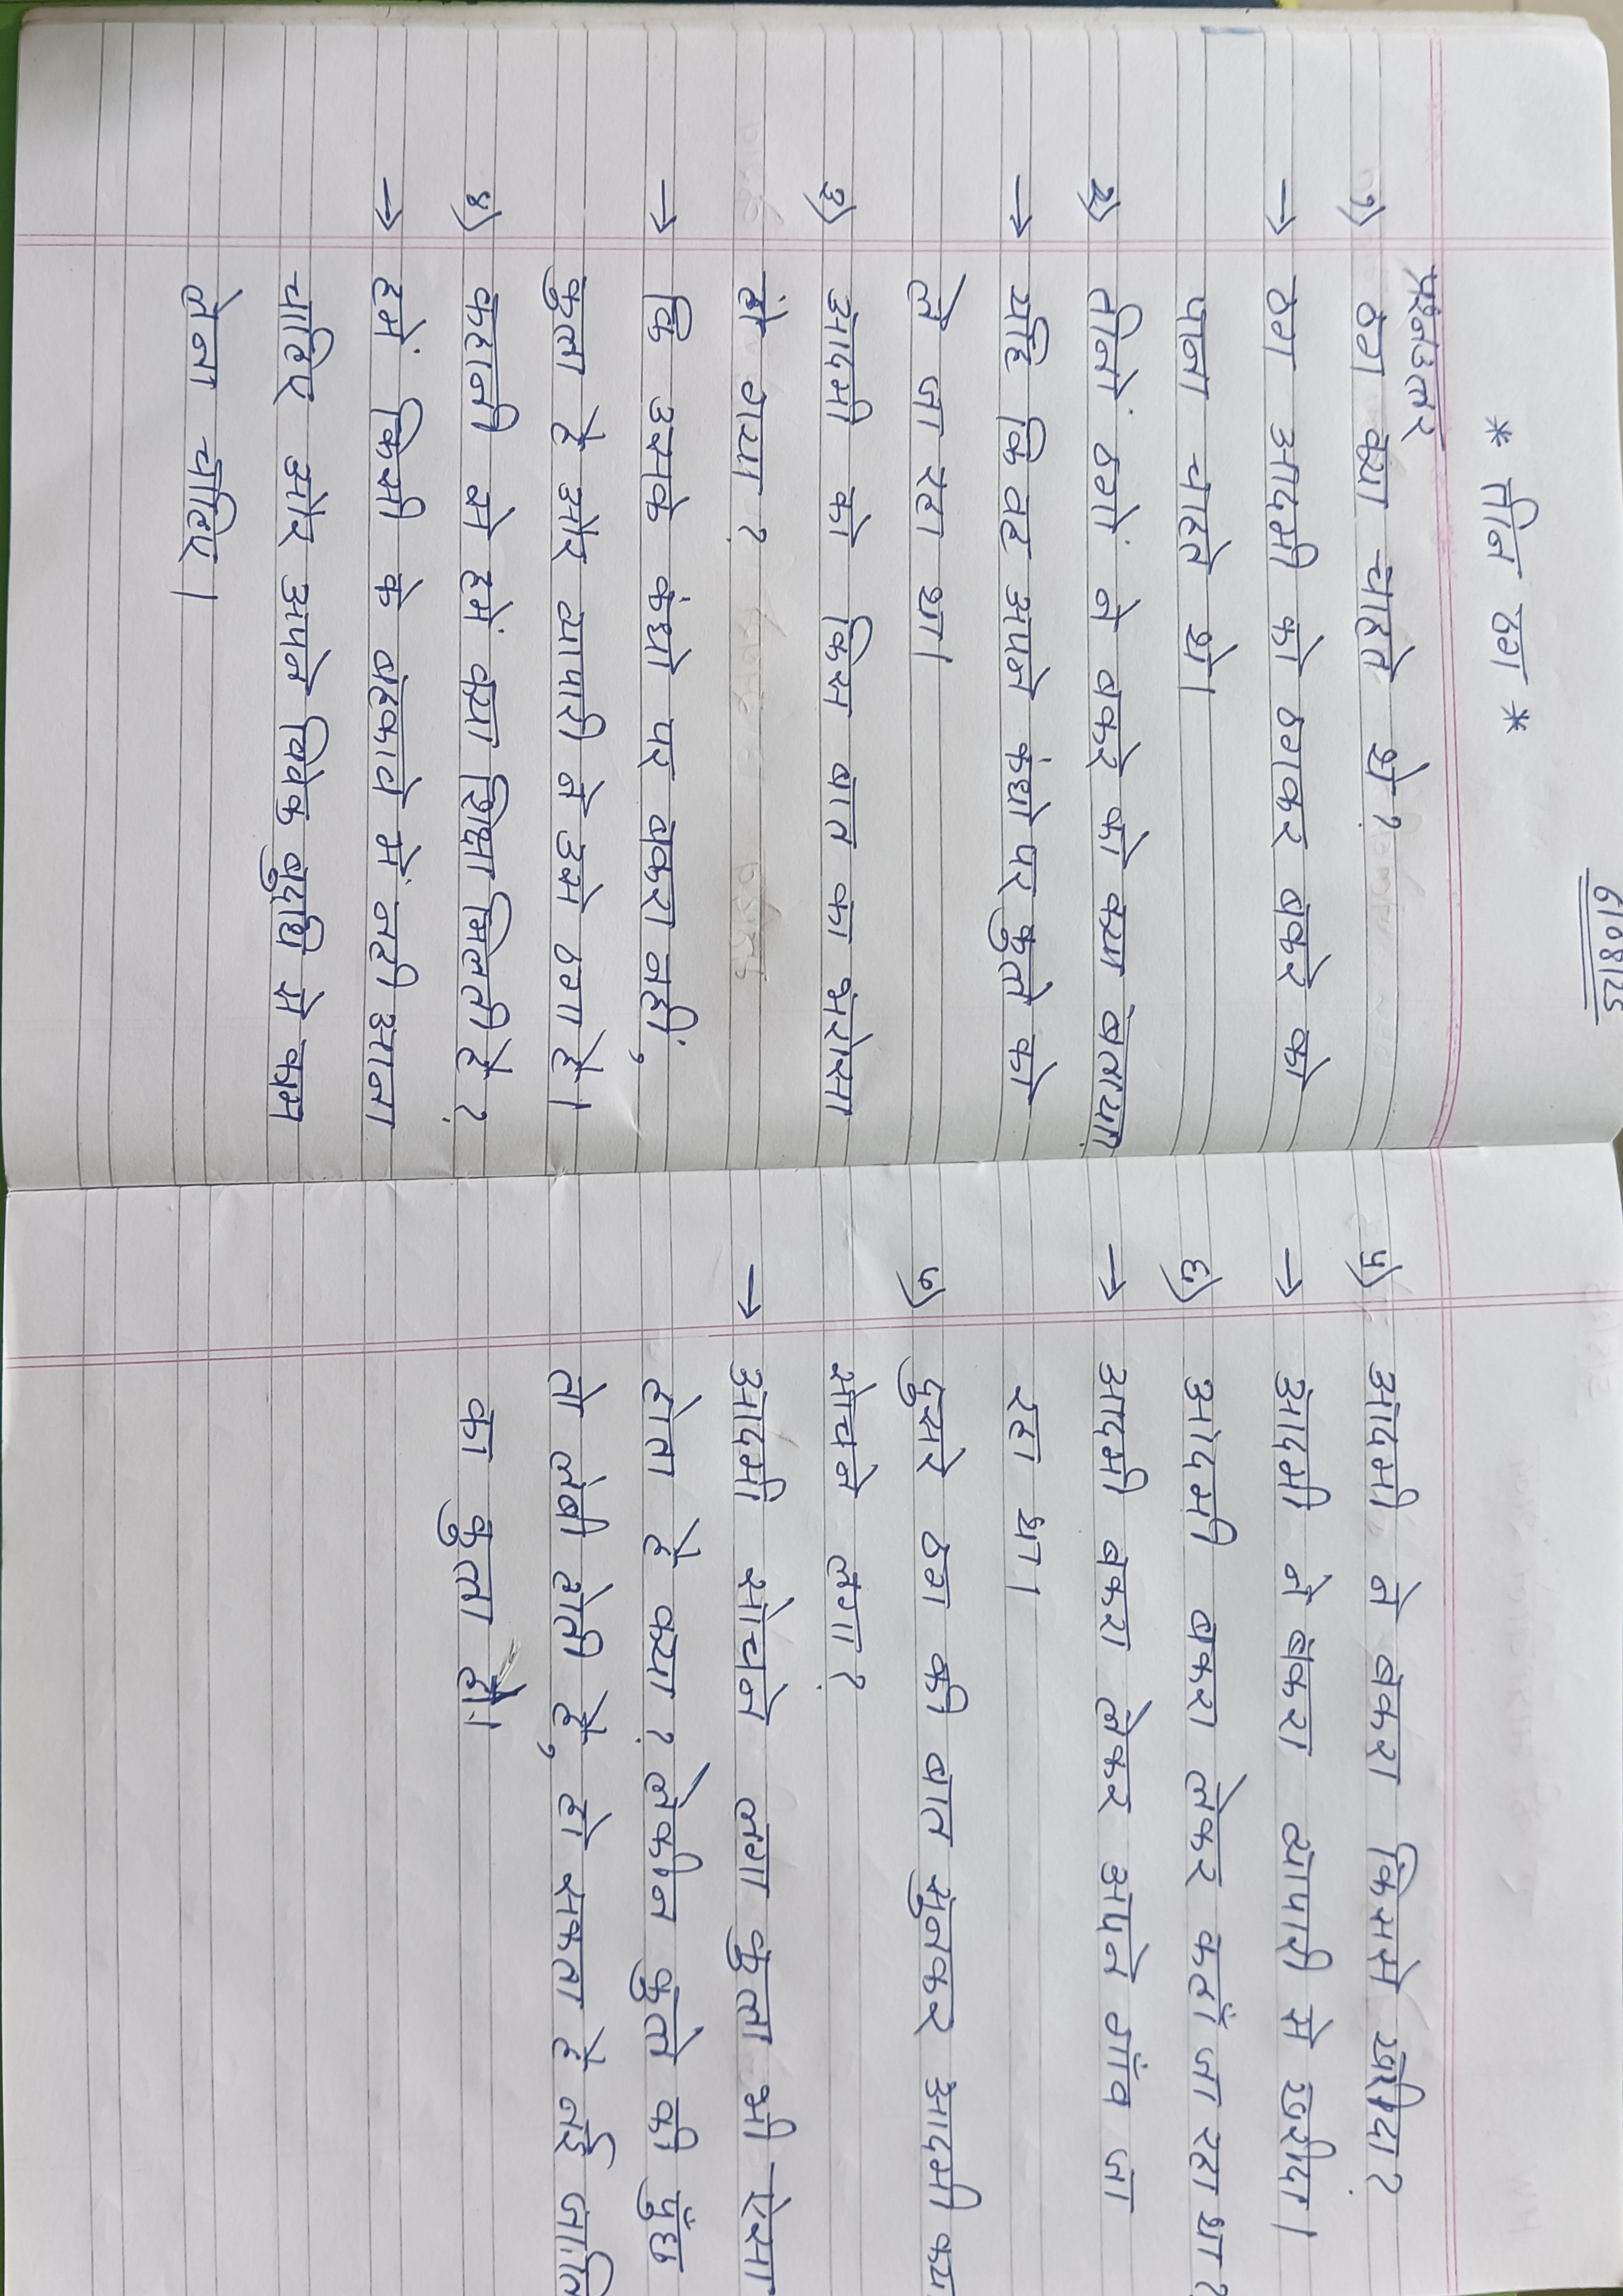 6/08/25
* तीन ठग *
प्रश्नउत्तर
१) ठग क्या चाहते थे ?
→ ठग आदमी को ठगकर बकरे को
पाना चाहते थे।
२) तीनों ठगों ने बकरे को क्या बताया?
→ यहि कि वह अपने कंधो पर कुत्ते को
ले जा रहा था।
३) आदमी को किस बात का भरोसा
हो गया ?
→ कि उसके कंधो पर बकरा नहीं,
कुत्ता है और व्यापारी ने उसे ठगा है।
४) कहानी से हमें क्या शिक्षा मिलती है ?
→ हमें किसी के बहकावे में नही आना
चाहिए और अपने विवेक बुद्धि से काम
लेना चाहिए।
५) आदमी ने बकरा किससे खरीदा?
→ आदमी ने बकरा व्यापारी से खरीदा।
६) आदमी बकरा लेकर कहाँ जा रहा था ?
→ आदमी बकरा लेकर अपने गाँव जा
रहा था।
७) दुसरे ठग की बात सुनकर आदमी क्या
सोचने लगा ?
→ आदमी सोचने लगा कुत्ता भी ऐसा
होता है क्या ? लेकीन कुत्ते की पुँछ
तो लंबी होती है, हो सकता है नई जाति
का कुत्ता हो।